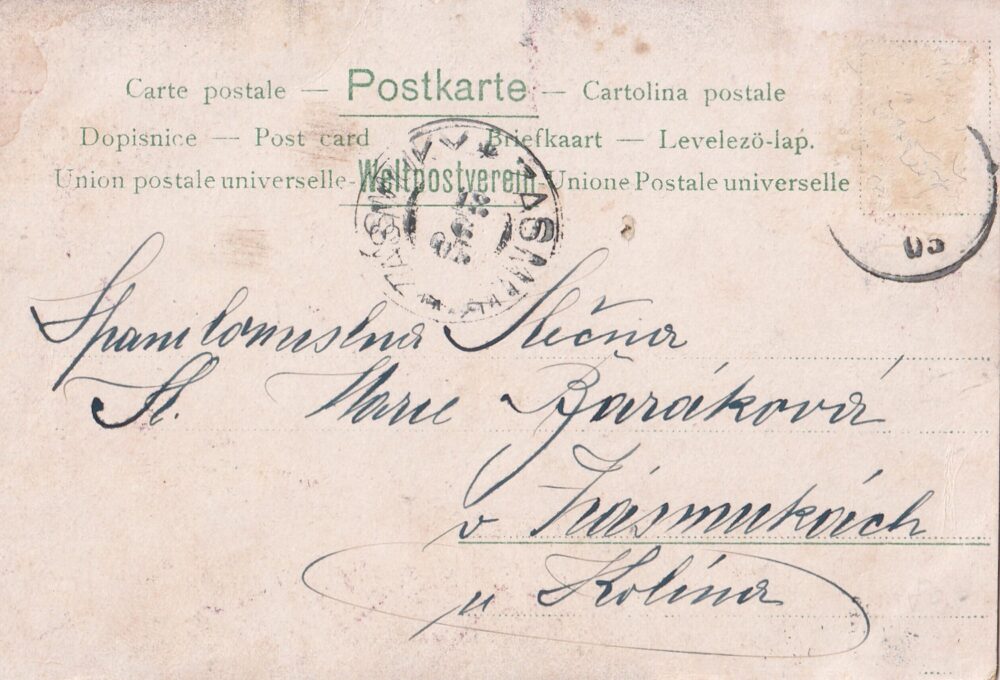 Carte postale — Postkarte — Cartolina postale
Dopisnice — Post card Briefkaart — Levelező-lap.
Union postale universelle-Weltpostverein-Unione Postale universelle
ZASMUKY
03
Slečna
Sl. Marie Bařáková
v Zásmukách
u Kolína